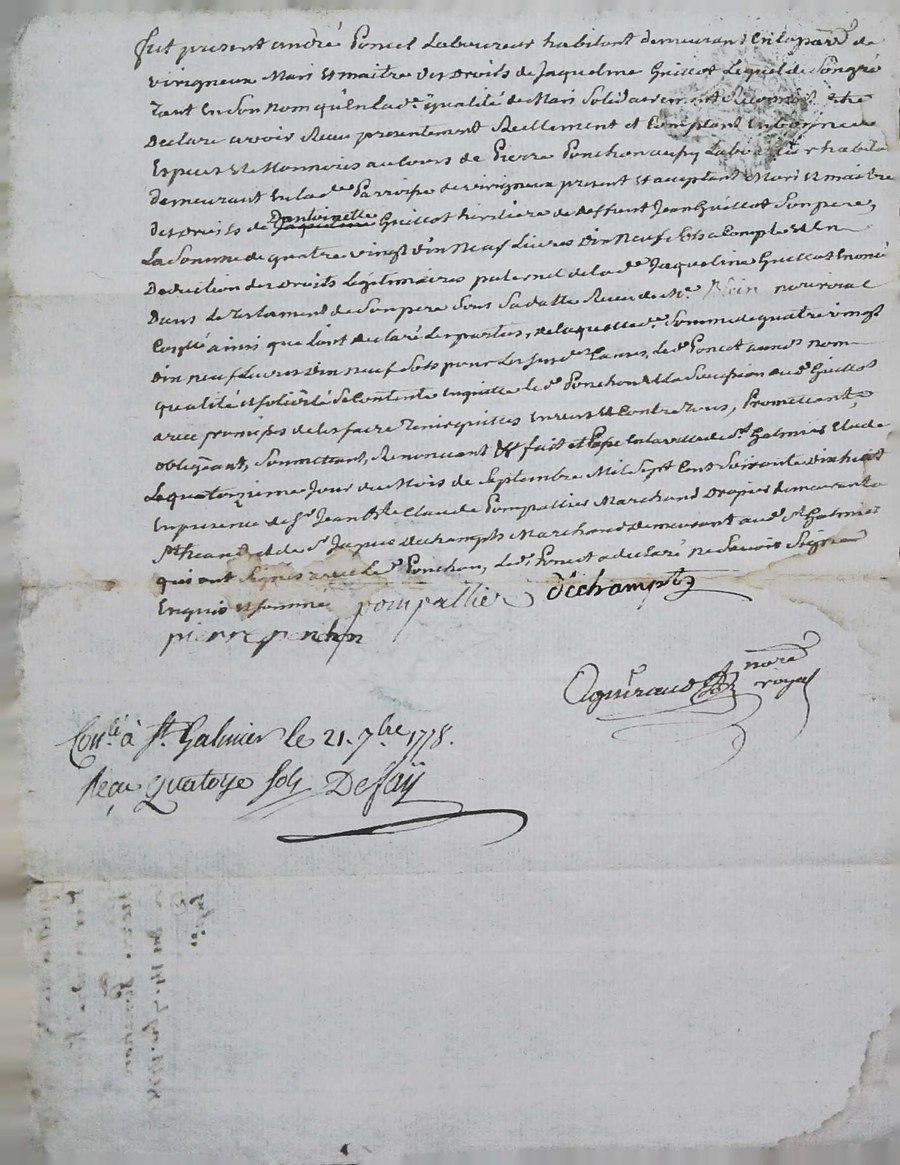 fut present andré Poncet Laboureur habitant demeurant En la parr. de
virigneux Mari et maitre des Droits de Jaqueline Guillot Lequel de Son gré
tant En Son nom qu'En lad. qualité de Mari Solidairement
Declare avoir Receu presentement Reellement et Comptant En bonnes
Especes et Monnoies au Cours de Pierre Ponchon aussy Laboureur habitant
demeurant En lad. Parroisse de virigneux present et acceptant Mari et maitre
des Droits de antoinette Guillot heritiere de deffunt Jean Guillot Son pere,
La Somme de quatre vingt dix Neuf Livres dix Neuf Sols a Compte et En
Deduction des droits Legitimaires paternel de lad. Jaqueline Guillot
Dans le testament de Son pere Sous Sa datte Receu de Me. Notaire
ainsi que l'ont declaré Les parties, de laquelle d. Somme de quatre vingt
dix neuf Livres dix neuf Sols pour Les Susd. Causes, Le d. Poncet aux d. nom
qualité et solidité Se Contente En quitte le d. Ponchon et la Succession aud. Guillot
avec promesse de les faire tenir quittes Envers et Contre tous, Promettant,
obligeant, Soumettant, Renonçant fait et Passé En la ville de St. Galmier Etude
Le quatorzieme Jour du Mois de Septembre Mil Sept Cent Soixante dix huit
En presence de Sr. Jean Bte. Claude Pompallier Marchand Drapier demeurant a
St. et de Sr. Jaques dechampts Marchand demeurant aud. St. Galmier
qui ont Signés avec Le d. Ponchon, Le d. Poncet a declaré ne Savoir Signer
Enquis et Sommé pompallier dechampts
pierre ponchon
Aguiraud nore
royal
Conlé. à St. Galmier le 21. 7bre 1778.
Reçu quatorze sols Defaÿ